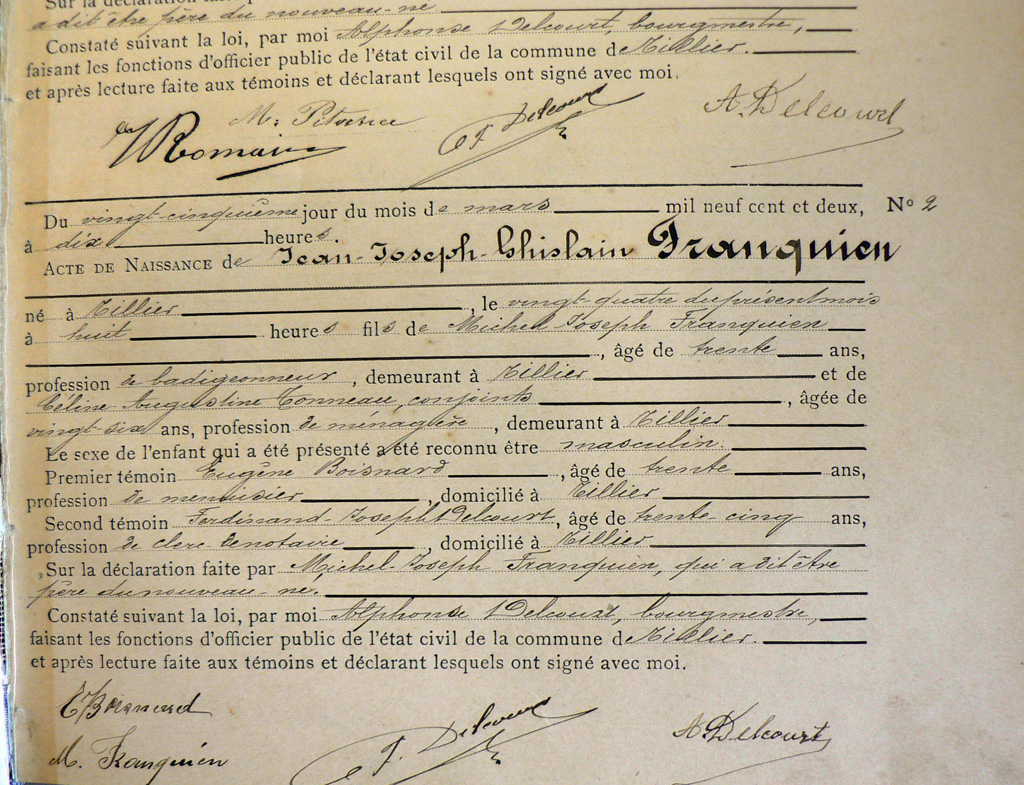 Sur la déclaration faite p
a dit être père du nouveau-né
Constaté suivant la loi, par moi Alphonse Delcourt, bourgmestre,
faisant les fonctions d'officier public de l'état civil de la commune de Tillier.
et après lecture faite aux témoins et déclarant lesquels ont signé avec moi.
Romain F. Delcourt A. Delcourt
Du vingt-cinquième jour du mois de mars mil neuf cent et deux, N° 2
à dix heures.
Acte de Naissance de Jean-Joseph-Ghislain Franquien
né à Tillier, le vingt-quatre du présent mois
à huit heures fils de Michel-Joseph Franquien
, âgé de trente ans,
profession de badigeonneur, demeurant à Tillier et de
Céline Augustine Tonneau, conjoints, âgée de
vingt-six ans, profession de ménagère, demeurant à Tillier
Le sexe de l'enfant qui a été présenté a été reconnu être masculin.
Premier témoin Eugène Boisnard, âgé de trente ans,
profession de menuisier, domicilié à Tillier
Second témoin Ferdinand-Joseph Delcourt, âgé de trente cinq ans,
profession de clerc de notaire, domicilié à Tillier
Sur la déclaration faite par Michel-Joseph Franquien, qui a dit être
père du nouveau-né.
Constaté suivant la loi, par moi Alphonse Delcourt, bourgmestre,
faisant les fonctions d'officier public de l'état civil de la commune de Tillier.
et après lecture faite aux témoins et déclarant lesquels ont signé avec moi.
E Boisnard
F. Delcourt A. Delcourt
M. Franquien